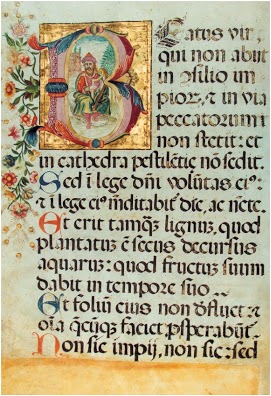 Beatus vir,
qui non abiit
in ɔsilio im
pioꝝ, ⁊ in via
peccatorum
non stetit: et
in cathedra pestilētie nō sedit.
Sed ī lege dnī volūtas eiꝰ:
⁊ ī lege eiꝰ meditabit die, ac nocte.
Et erit tamqꝫ lignuꝫ, quod
plantatuꝫ ē secus decursus
aquaruꝫ: quod fructuꝫ suum
dabit in tempore suo.
Et foliuꝫ eius non defluet: ⁊
oīa q̄cūqꝫ faciet ꝓsperabūt.
Non sic impij, non sic: sed